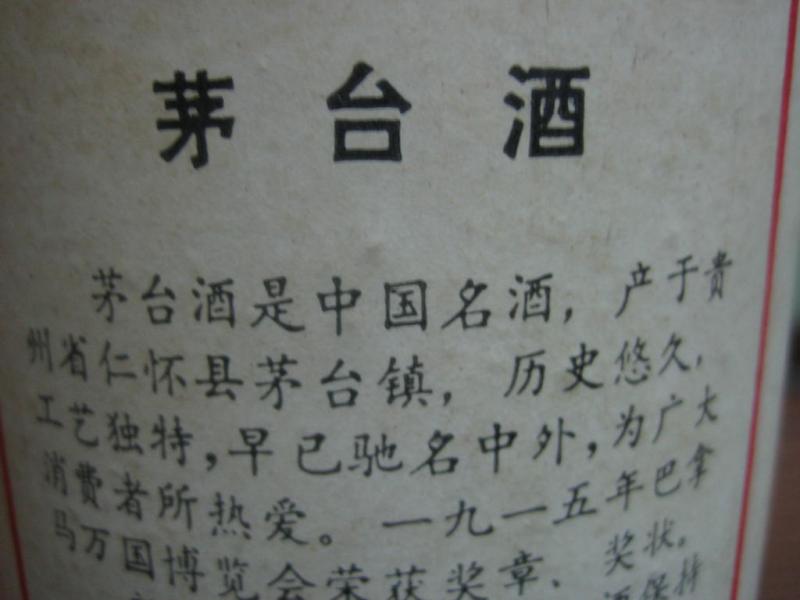 茅台酒
茅台酒是中国名酒，产于贵
州省仁怀县茅台镇，历史悠久，
工艺独特，早已驰名中外，为广大
消费者所热爱。一九一五年巴拿
马万国博览会荣获奖章、奖状。
酒保持